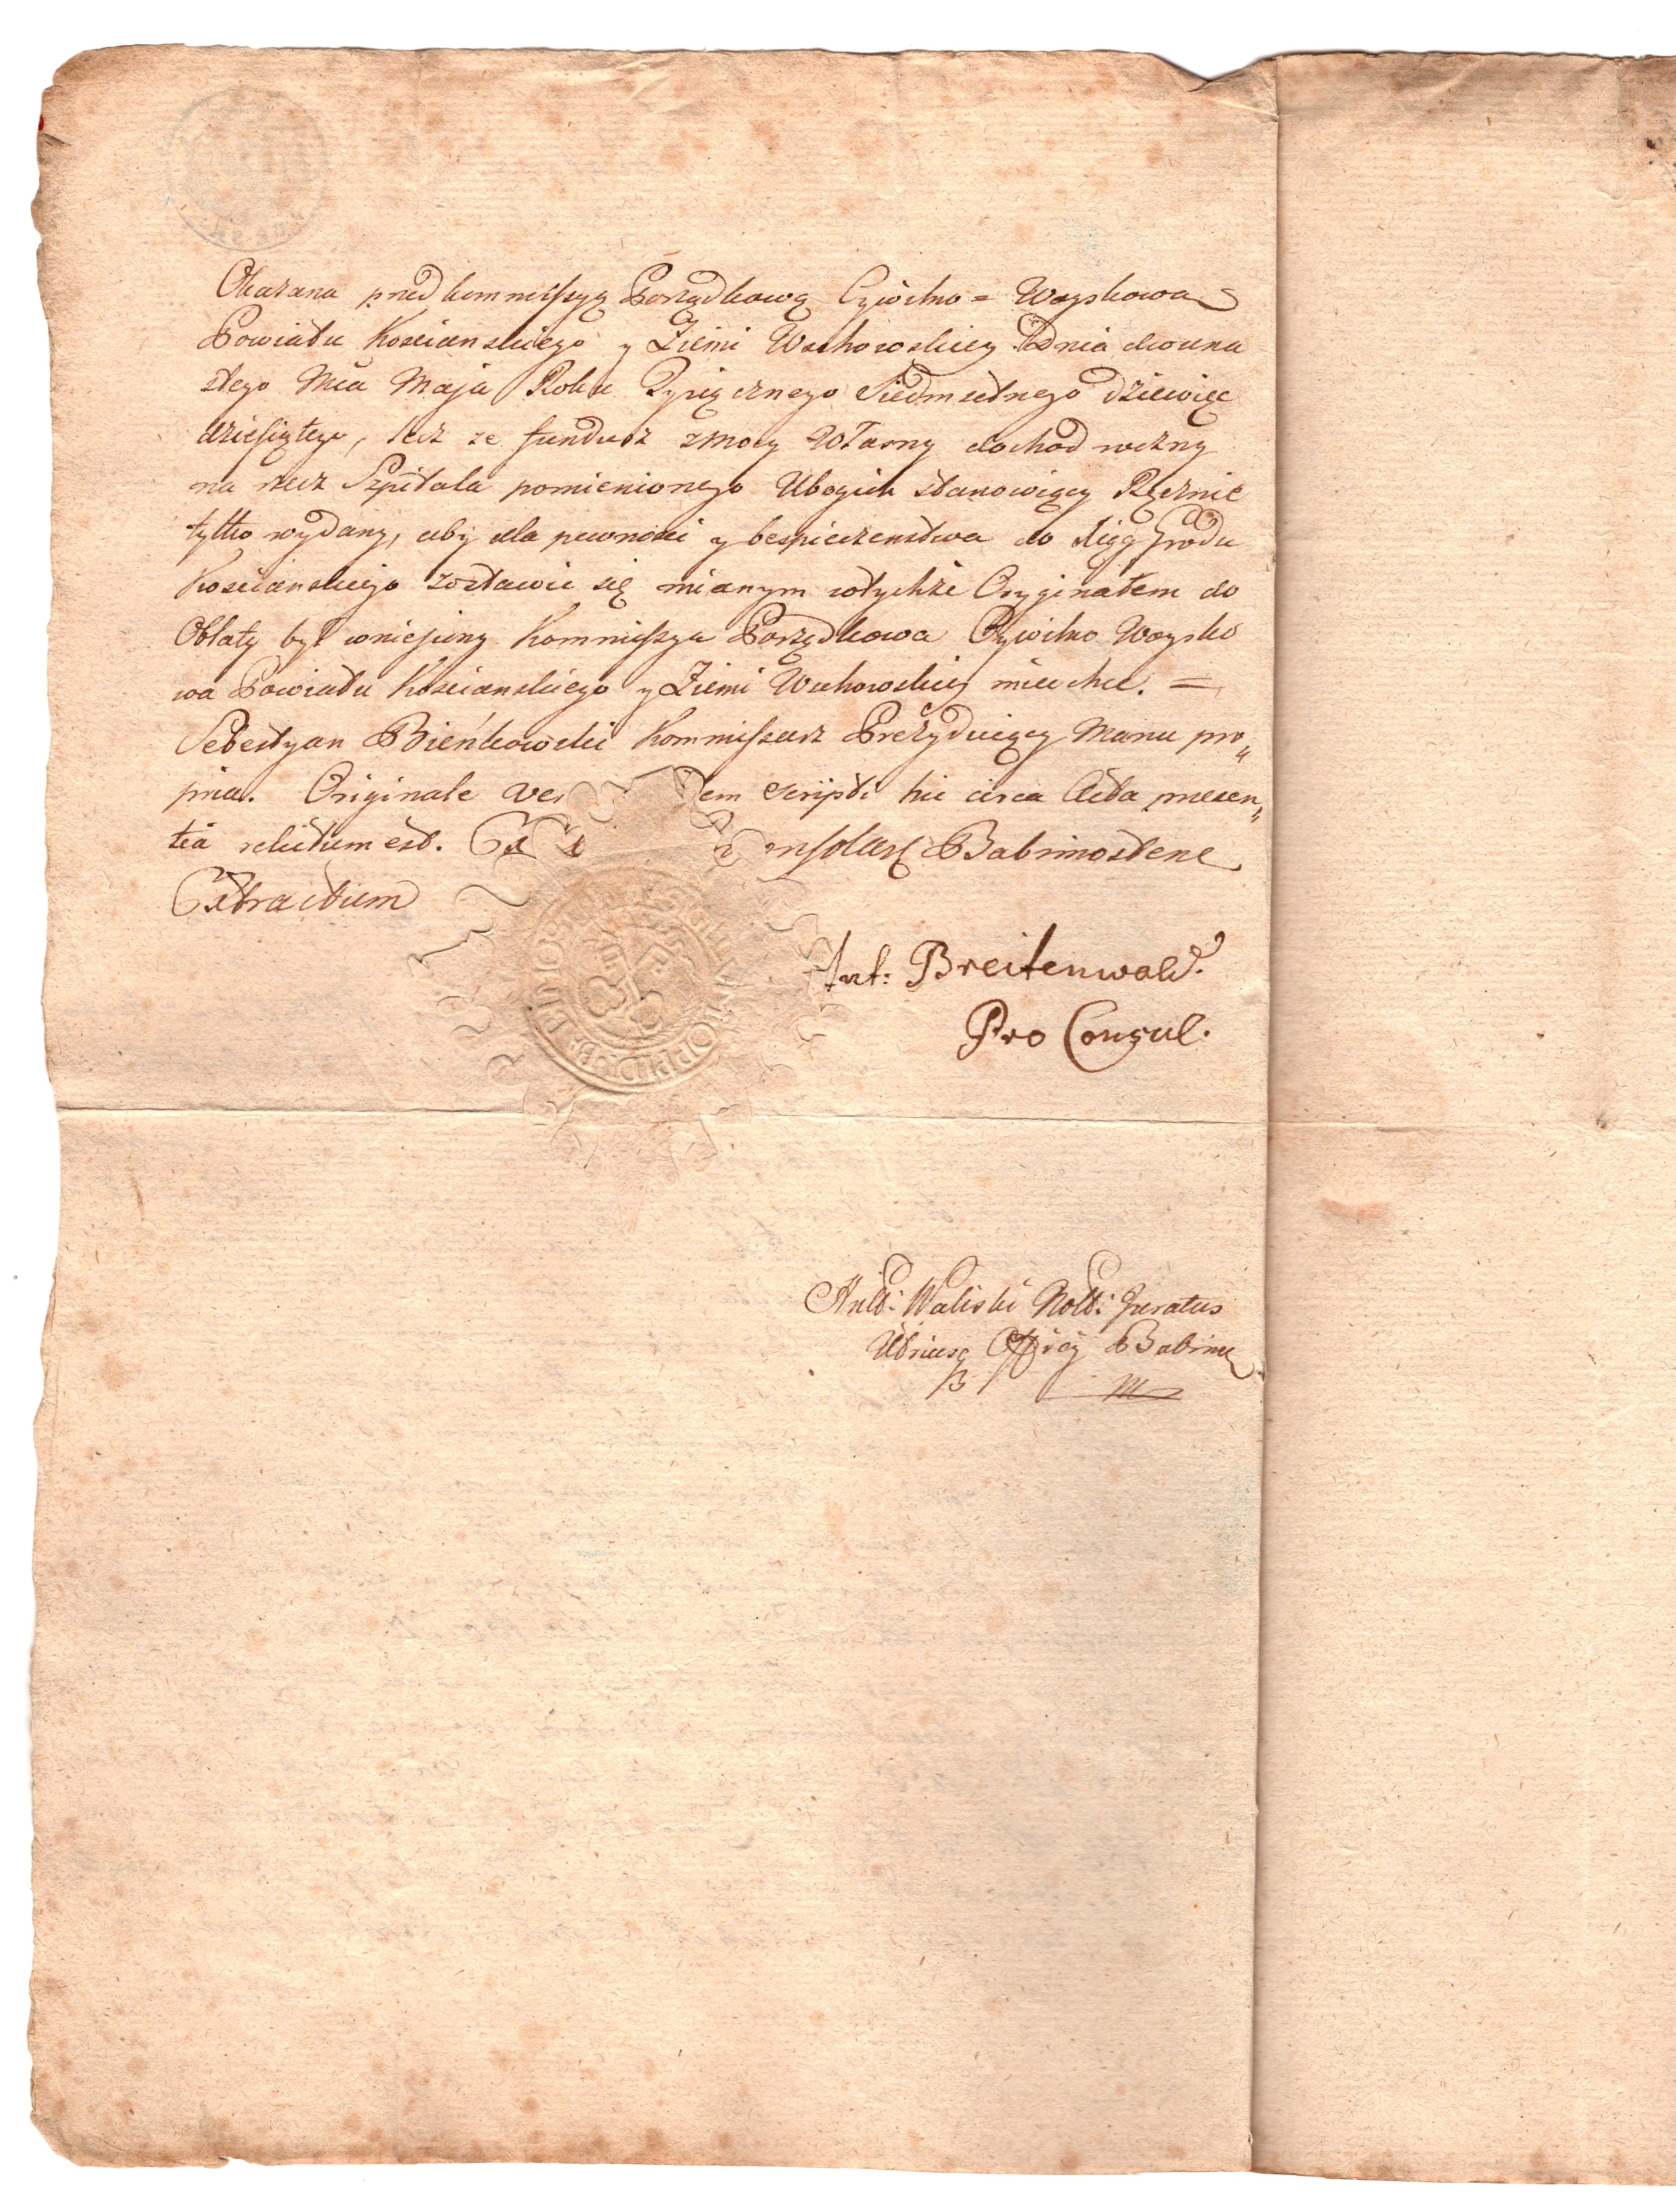 Okazana przed kommissyą Porządkową Cywilno = Woyskową
Powiatu Kościanskiego y Ziemi Wschowskiey Dnia dwuna
stego Mca Maja Roku Tysiącznego Siedmsetnego dziewięć
dziesiątego, lecz ze fundusz z mocy Własny dochod roczny
na rzecz Szpitala pomienionego Ubogich stanowiący Ręcznie
tylko wydany, aby dla pewności y bespieczenstwa do xiąg Grodu
Kościanskiego zostawić się mianym wtychże Oryginałem do
Oblaty był wniesiony Kommissya Porządkowa Cywilno Woysko
wa Powiatu Kościanskiego y Ziemi Wschowskiey mieć chce. =
Sebestyan Bieńkowski Kommissarz Prezyduiący Manu pro„
pria. Originale ... dem scripti hic circa Acta presen„
tia relictum est. Ex ... Consulari Babimostene
Extractum
Ant: Breitenwald.
Pro Consul.
Ant: Waliski Nott: Juratus
Utriusq Officij Babime
OPPID